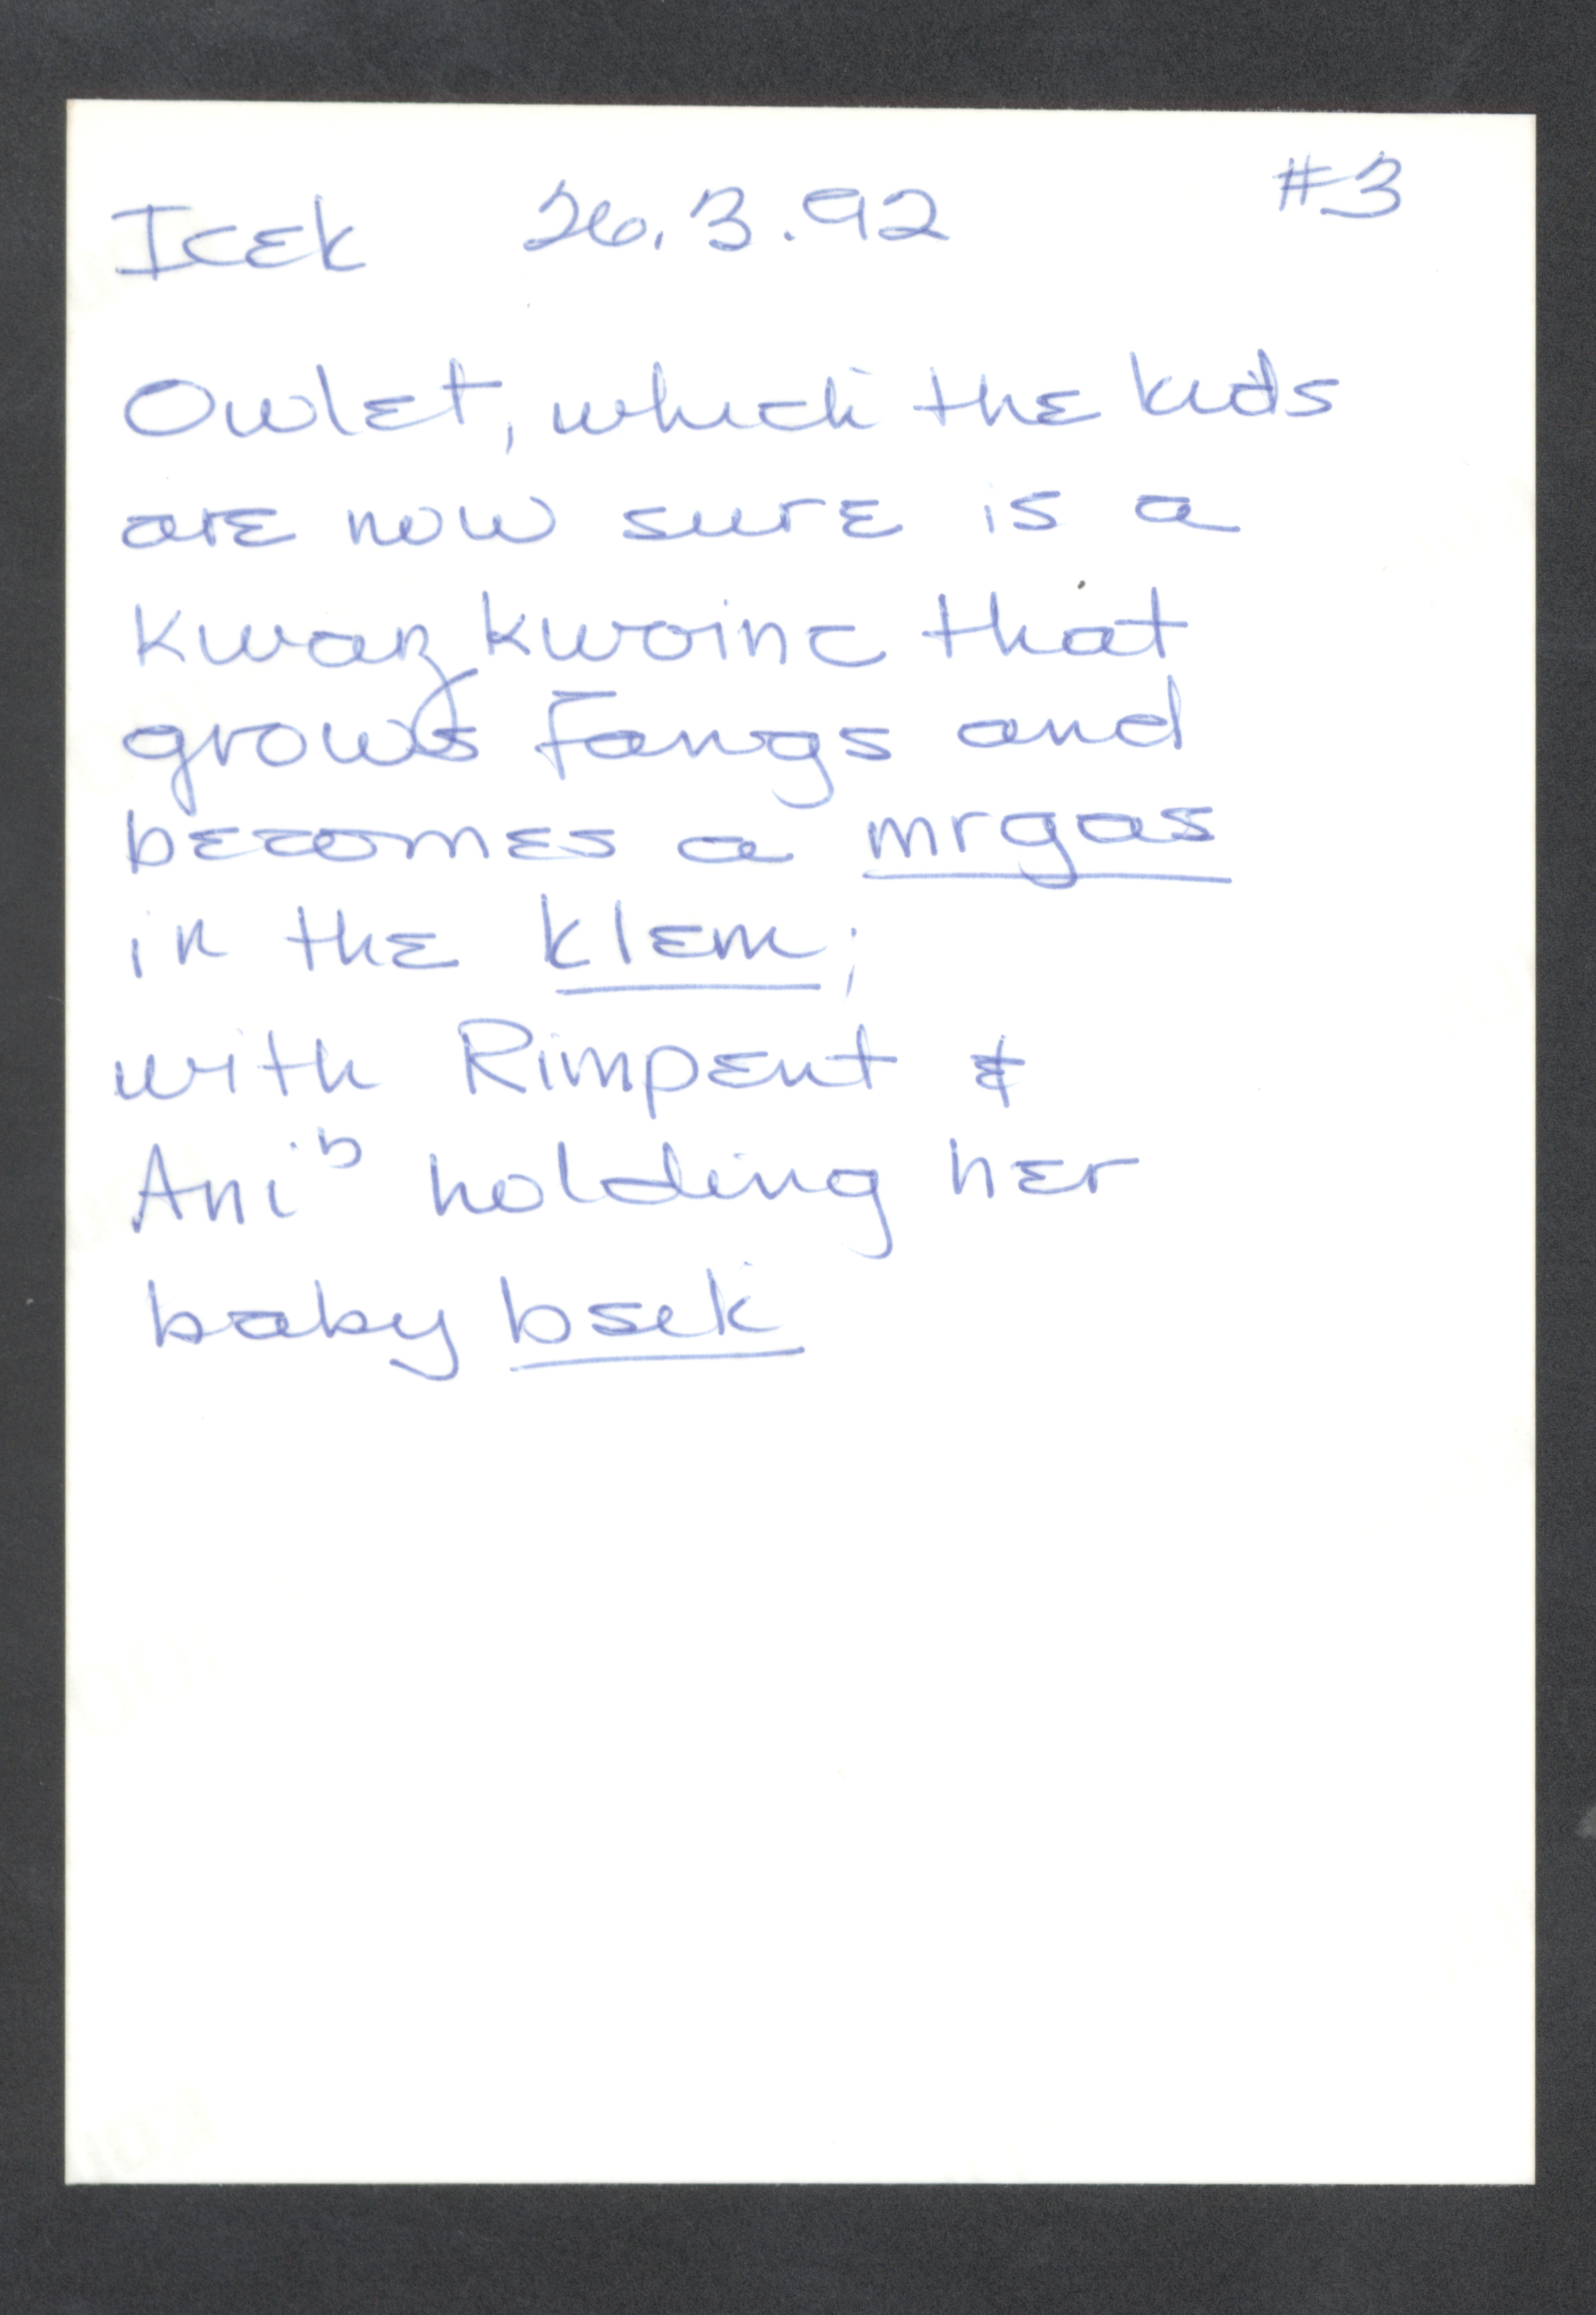 Icek 26.3.92 #3
Owlet, which the kids
are now sure is a
kwazkwoinc that
grows fangs and
becomes a mrgas
in the klem;
with Rimpent &
Aniᵇ holding her
baby bsek